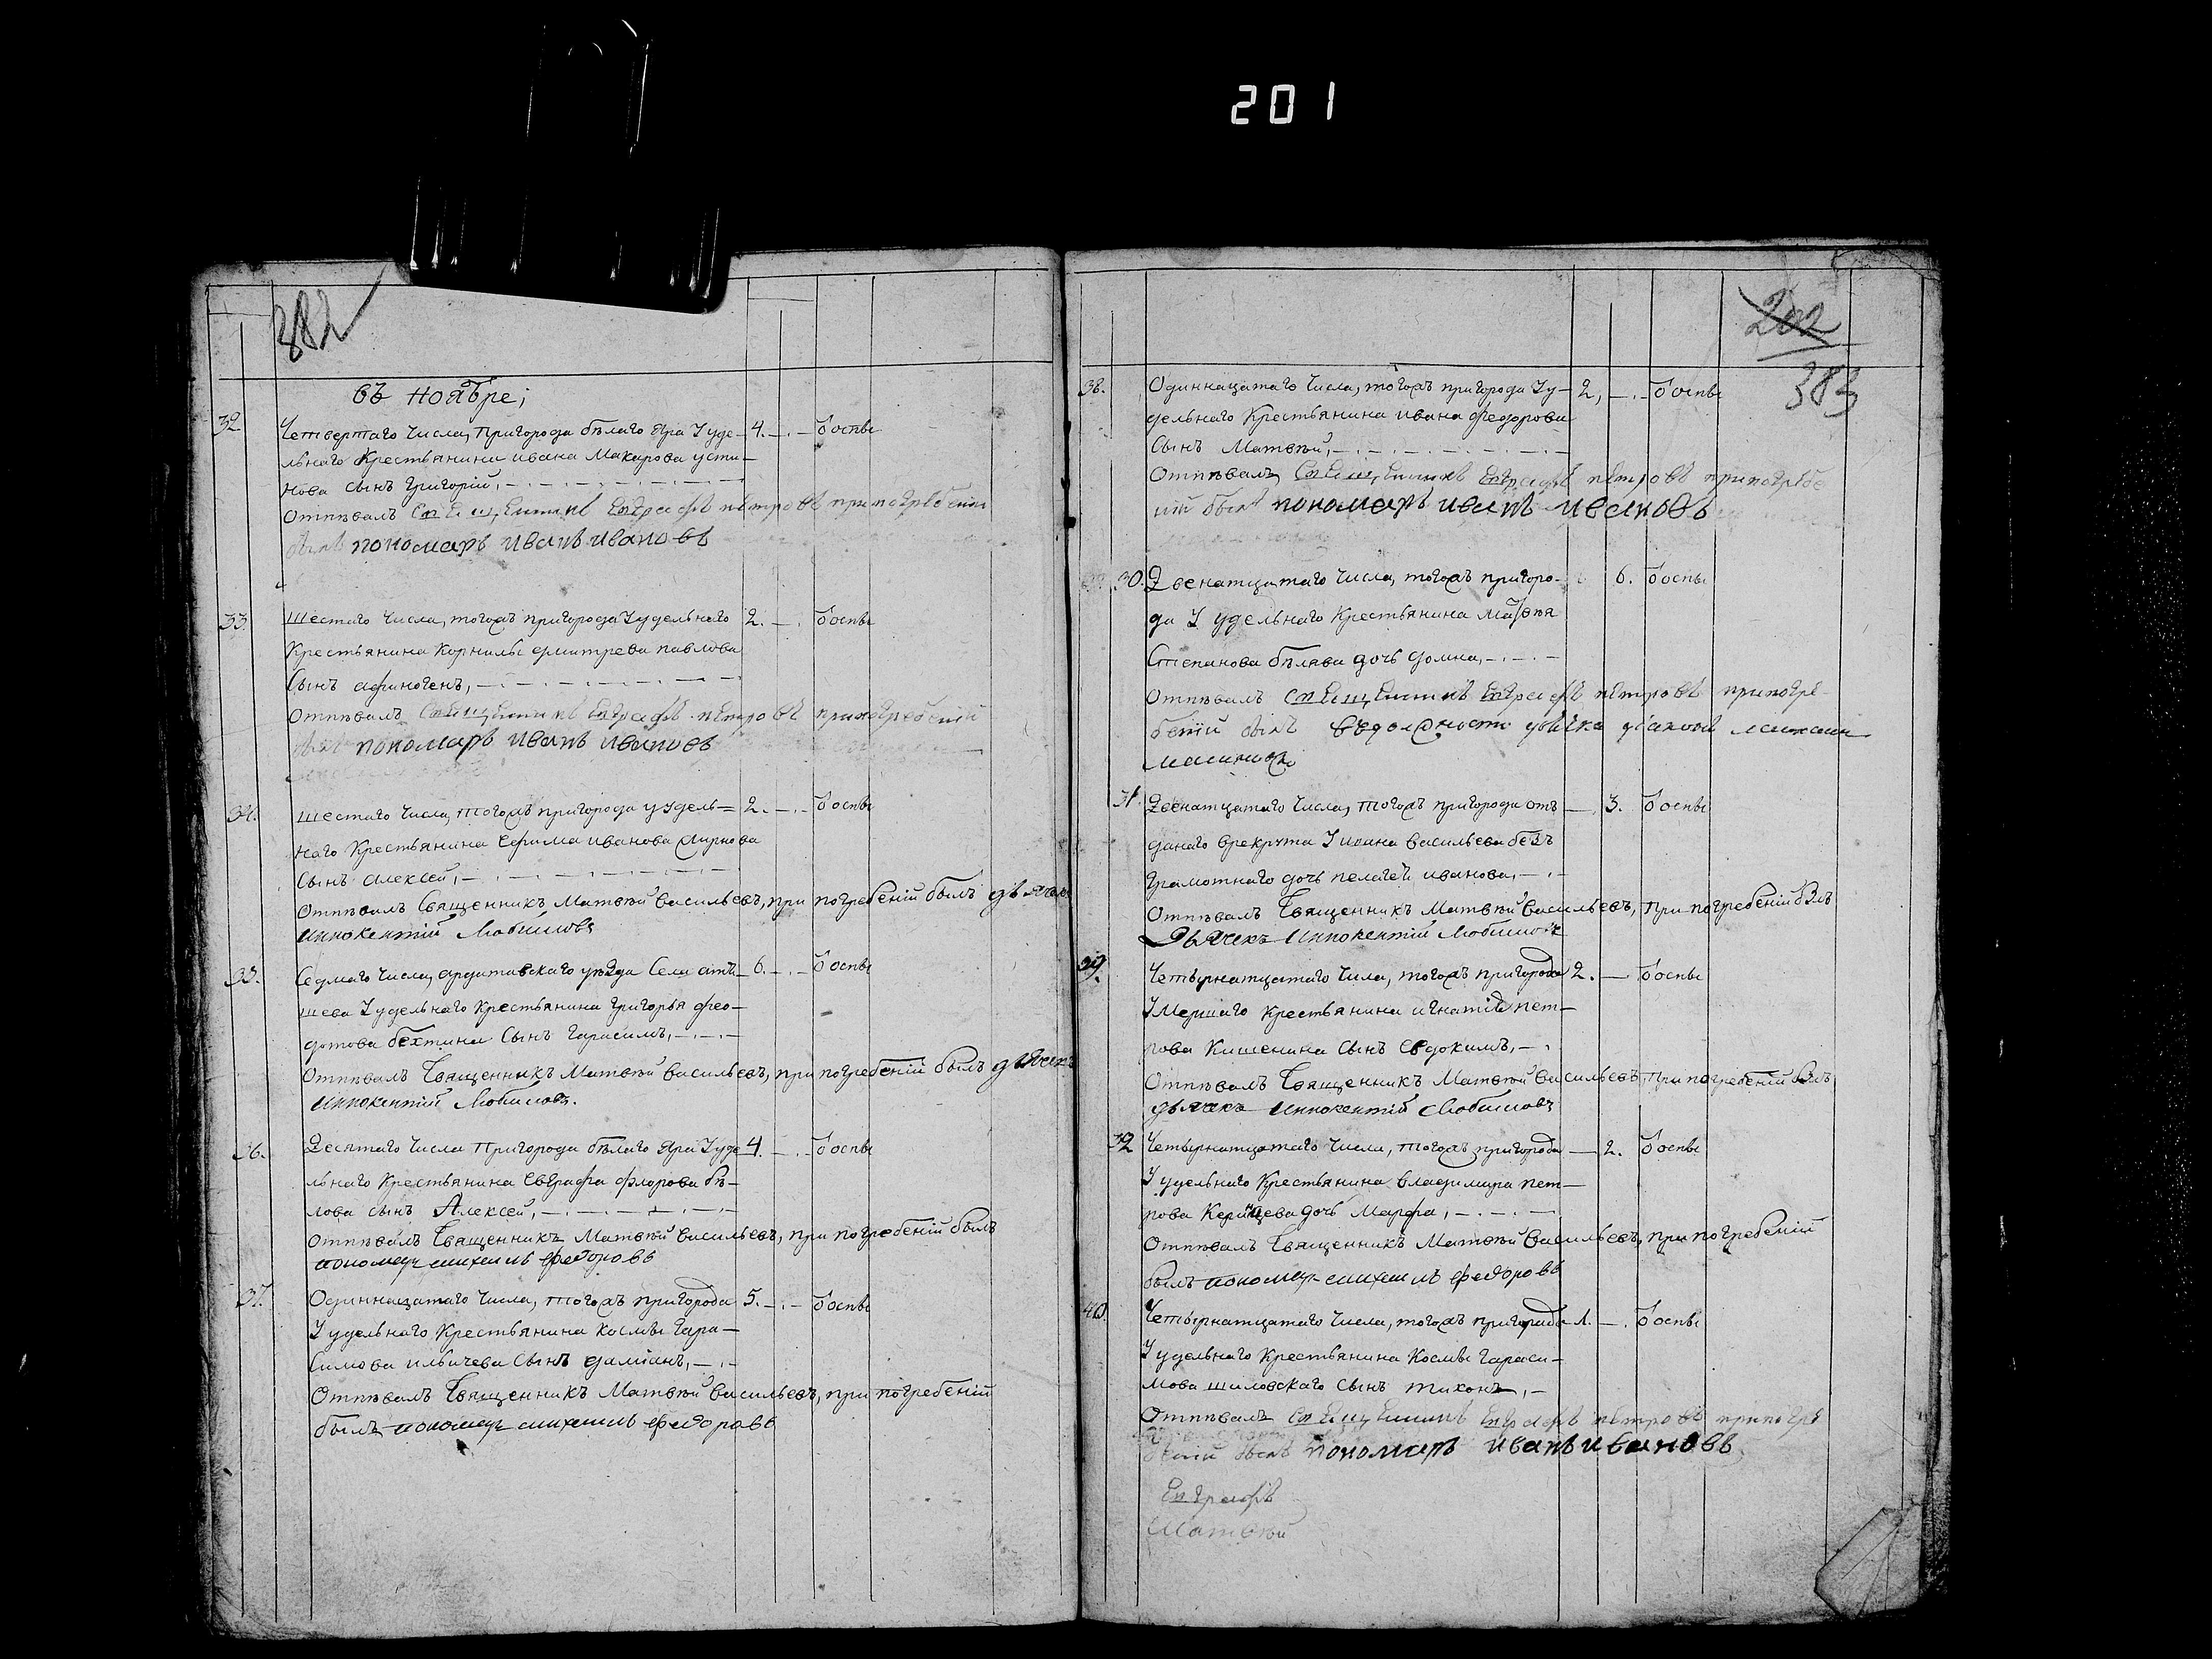 201
382
въ ноябре;
32 Четвертаго Числа, Пригорода бѣлаго Яра Iуде- 4. оспы
льнаго Крестьянина ивана Макарова усти-
нова сынъ Григорий,
Отпѣвалъ Священникъ Евграфъ петровъ при погребении
былъ пономарь иванъ ивановъ
33. Шестаго Числа, тогожъ пригорода Iудельнаго 2. оспы
Крестьянина Корнилы дмитрева павлова
Сынъ афиногенъ,
Отпѣвалъ Священникъ Евграфъ петровъ при погребений
былъ пономарь иванъ ивановъ
34. Шестаго Числа, тогожъ пригорода удель= 2. оспы
наго Крестьянина Ефима иванова
Сынъ алексей,
Отпѣвалъ Священникъ Матвѣй Васильевъ, при погребений былъ дьячекъ
Иннокентий Любимовъ
35. Седмаго Числа, ардатавскаго уѣзда Села 6. оспы
шева Iудельнаго Крестьянина Григорья фео-
дотова бехтина Сынъ Гарасимъ,
Отпѣвалъ Священникъ Матвѣй Васильевъ, при погребений былъ дьячекъ
Иннокентий Любимовъ.
36. Десятаго Числа Пригорода бѣлаго Яра Iуде 4. оспы
льнаго Крестьянина Евграфа флорова бѣ-
лова сынъ Алексей,
Отпѣвалъ Священникъ Матвѣй Васильевъ, при погребений былъ
пономарь михаилъ федоровъ
37. Одиннацатаго Числа, тогожъ пригорода 5. оспы
Iудельнаго Крестьянина Космы Гара-
Симова ильичева Сынъ дамианъ,
Отпѣвалъ Священникъ Матвѣй Васильевъ, при погребений
былъ пономарь михаилъ федоровъ
202
383
38. Одиннацатаго Числа, тогожъ пригорода Iу- 2, оспы
дельнаго Крестьянина ивана Федорова
Сынъ Матвѣй,
Отпѣвалъ Священникъ Евграфъ петровъ при погребе
ний былъ пономарь иванъ ивановъ
30. Двенатцатаго Числа, тогожъ пригоро- 6. оспы
да Iудельнаго Крестьянина Матвѣя
Степанова бѣлава дочь домна,
Отпѣвалъ Священникъ Евграфъ петровъ при погре-
бений былъ въ должности дьячка
31. Двенатцатаго Числа, тогожъ пригорода отъ 3. оспы
данаго врекруты Iивана Васильева безъ
грамотнаго дочь пелагея иванова,
Отпѣвалъ Священникъ Матвѣй Васильевъ, при погребений былъ
Дьячекъ Иннокентий Любимовъ
39. Четырнатцатаго Числа, тогожъ пригорода 2. оспы
Умершаго Крестьянина игнатия пет-
рова Кишенина Сынъ Евдокимъ,
Отпѣвалъ Священникъ Матвѣй Васильевъ, При погребений былъ
дьячекъ Иннокентий Любимовъ
32 Четырнатцатаго Числа, тогожъ пригорода 2. оспы
Iудельнаго Крестьянина Владимира пет-
рова дочь Марфа,
Отпѣвалъ Священникъ Матвѣй Васильевъ, при погребений
былъ пономарь михаилъ федоровъ
40. Четырнатцатаго Числа, тогожъ пригорода 1. оспы
Iудельнаго Крестьянина Космы Гараси-
мова шиловскаго Сынъ тихонъ,
Отпѣвалъ Священникъ Евграфъ петровъ при погре
бений былъ пономарь иванъ ивановъ
Евграфъ
Матвѣй